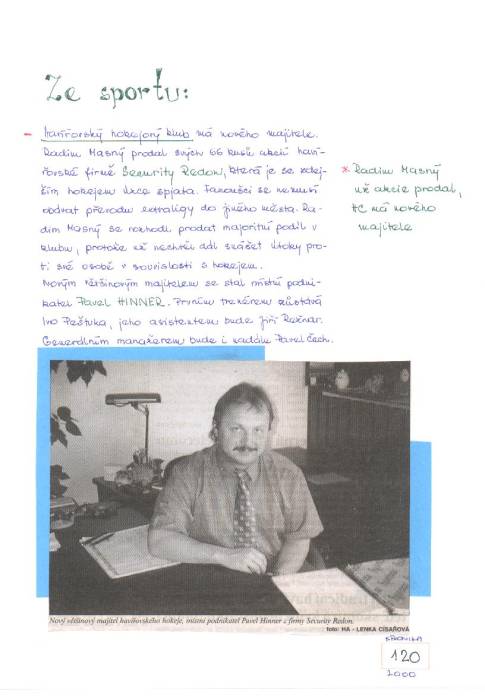 Ze sportu:
- havířovský hokejový klub má nového majitele.
Radim Masný prodal svých 66 kusů akcií haví-
řovské firmě Security Redon, která je se zdej-
ším hokejem úzce spjata. Fanoušci se nemusí
obávat převodu extraligy do jiného města. Ra-
dim Masný se rozhodl prodat majoritní podíl v
klubu, protože už nechtěl dál snášet útoky pro-
ti své osobě v souvislosti s hokejem.
Novým většinovým majitelem se stal místní podni-
katel Pavel HINNER. Prvním trenérem zůstává
Ivo Peštuka, jeho asistentem bude Jiří Režnar.
Generálním manažerem bude i nadále Pavel Čech.
* Radim Masný
už akcie prodal,
HC má nového
majitele
Nový většinový majitel havířovského hokeje, místní podnikatel Pavel Hinner z firmy Security Redon.
foto: HA - LENKA CÍSAŘOVÁ
KRONIKA
120
2000